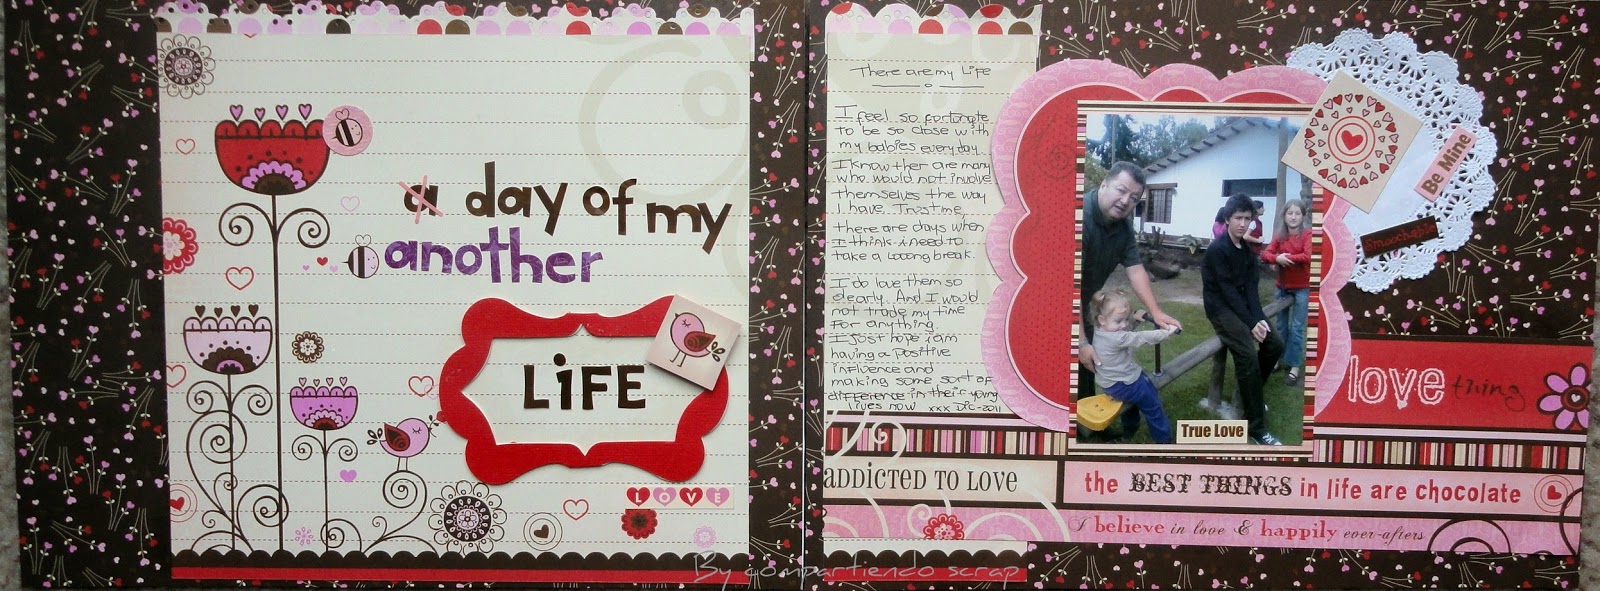 a day of my
another
LiFE
LOVE
There are my Life
I feel so fortunate
to be so close with
my babies everyday.
I know ther are many
who would not involve
themselves the way
I have. Trust me,
there are days when
I think i need to
take a looong break.
I do love them so
dearly. And I would
not trade my time
for anything.
I just hope iam
having a positive
influence and
making some sort of
difference in their young
lives now xxx Dic-2011
Be Mine
Smoochable
True Love
love thing
ADDICTED TO LOVE
the BEST THINGS in life are chocolate
I believe in love & happily ever-afters
By compartiendo scrap